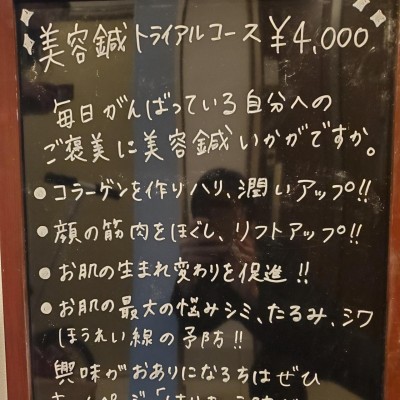 美容鍼トライアルコース¥4,000
毎日がんばっている自分への
ご褒美に美容鍼いかがですか。
●コラーゲンを作りハリ、潤いアップ!!
●顔の筋肉をほぐし、リフトアップ!!
●お肌の生まれ変わりを促進!!
●お肌の最大の悩みシミ、たるみ、シワ
ほうれい線の予防!!
興味がおありになる方はぜひ